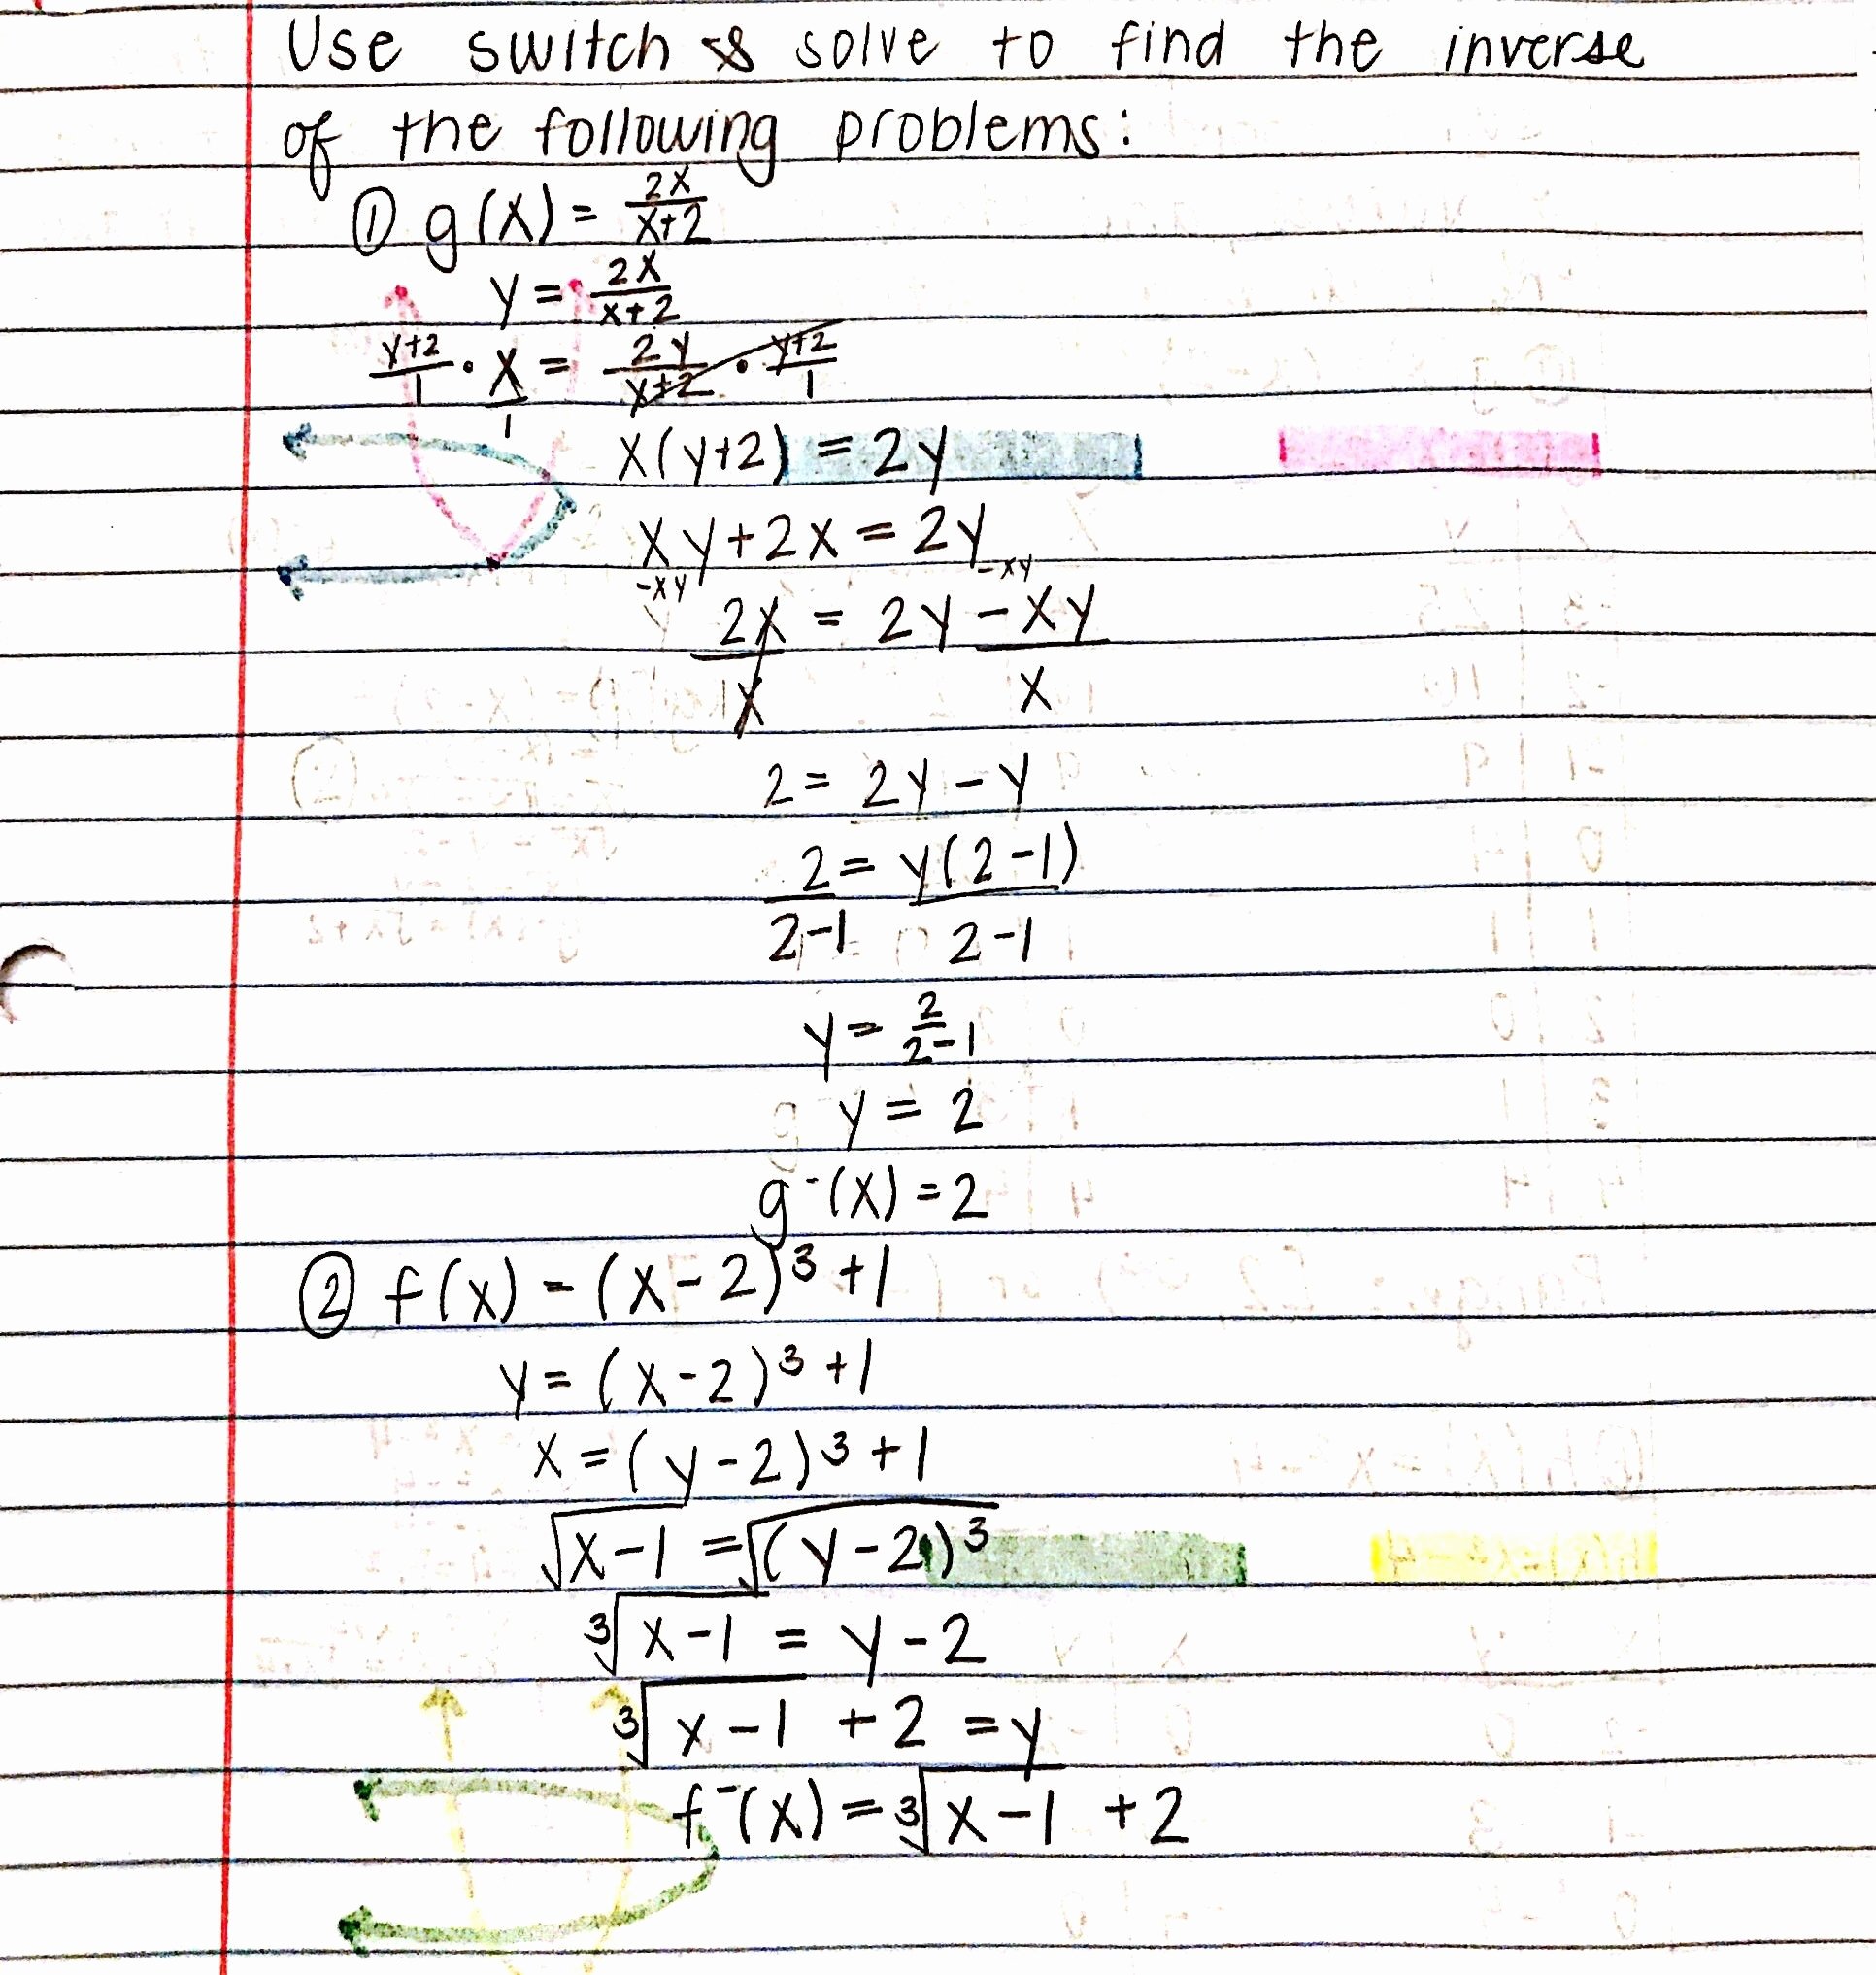 Use switch & solve to find the inverse
of the following problems:
① g(x) = 2x/x+2
y = 2x/x+2
y+2/1 · x/1 = 2y/y+2 · y+2/1
x(y+2) = 2y
xy+2x = 2y
-xy -xy
2x = 2y - xy
x x
2 = 2y - y
2 = y(2-1)
2-1 2-1
y = 2/2-1
y = 2
g⁻(x) = 2
② f(x) = (x-2)³+1
y = (x-2)³+1
x = (y-2)³+1
√x-1 = √(y-2)³
³√x-1 = y-2
³√x-1 +2 = y
f⁻(x) = ³√x-1 +2